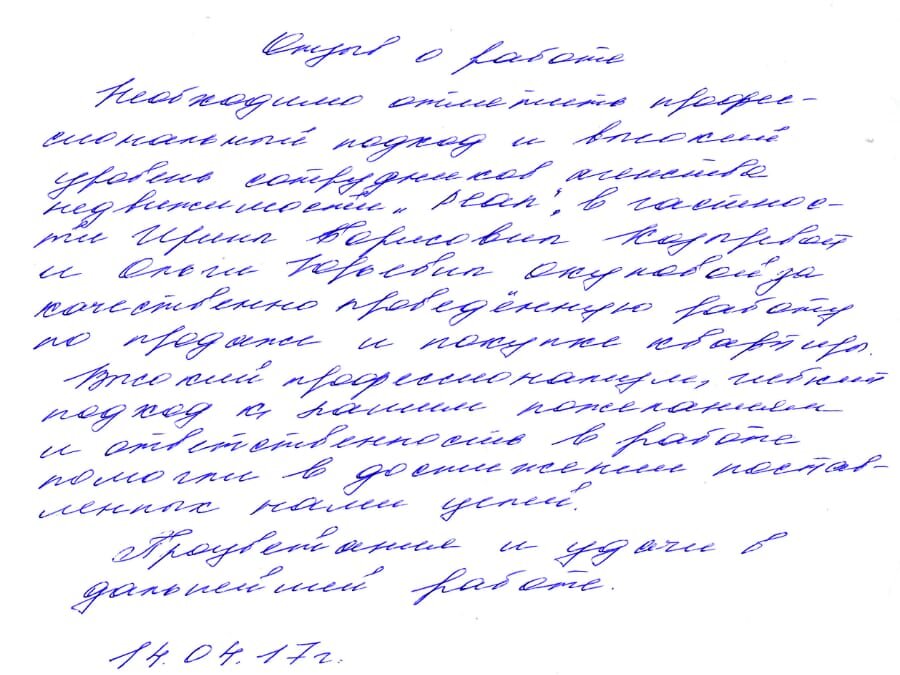 Отзыв о работе
Необходимо отметить профес-
сиональный подход и высокий
уровень сотрудников агенства
недвижимости „ ", в частнос-
ти Ирины Борисовны
и Ольги Юрьевны за
качественно проведённую работу
по продаже и покупке квартиры.
Высокий профессионализм, гибкий
подход к нашим пожеланиям
и ответственность в работе
помогли в достижении постав-
ленных нами целей.
Процветания и удачи в
дальнейшей работе.
14.04.17г.